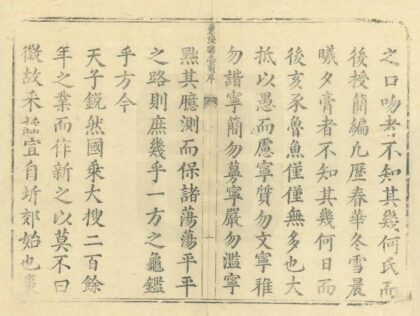 之口吻者不知其幾何氏而
後授簡編凡歷春華冬雪晨
曦夕膏者不知其幾何日而
後亥豕魯魚僅僅無多也大
抵以愚而慮寧質勿文寧雅
勿諧寧簡勿蕪寧嚴勿濫寧
㸃其臆測而保諸蕩蕩平平
之路則庶幾乎一方之龜鑑
乎方今
天子銳然國乘大搜二百餘
年之業而作新之以莫不曰
徵故采謡宜自圻郊始也